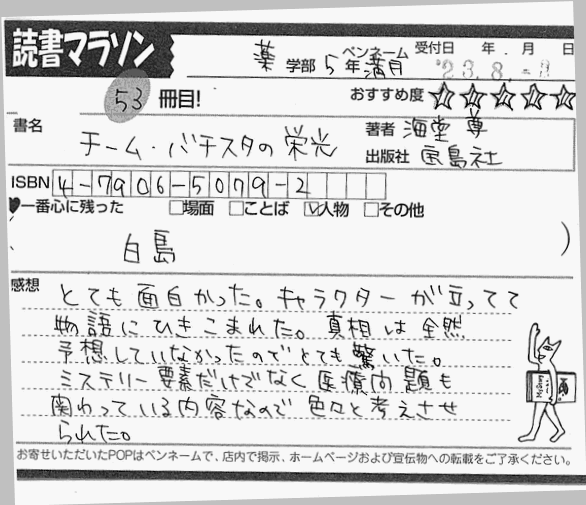 読書マラソン
薬 学部 5年 ペンネーム 満月
受付日 年 月 日
'23.8.-8
53 冊目!
おすすめ度 ☆☆☆☆☆
書名 チーム・バチスタの栄光
著者 海堂 尊
出版社 宝島社
ISBN 4-7906-5079-2
♥一番心に残った □場面 □ことば ☑人物 □その他
( 白鳥 )
感想
とても面白かった。キャラクターが立ってて
物語にひきこまれた。真相は全然
予想していなかったのでとても驚いた。
ミステリー要素だけでなく医療問題も
関わっている内容なので色々と考えさせ
られた。
お寄せいただいたPOPはペンネームで、店内で掲示、ホームページおよび宣伝物への転載をご了承ください。